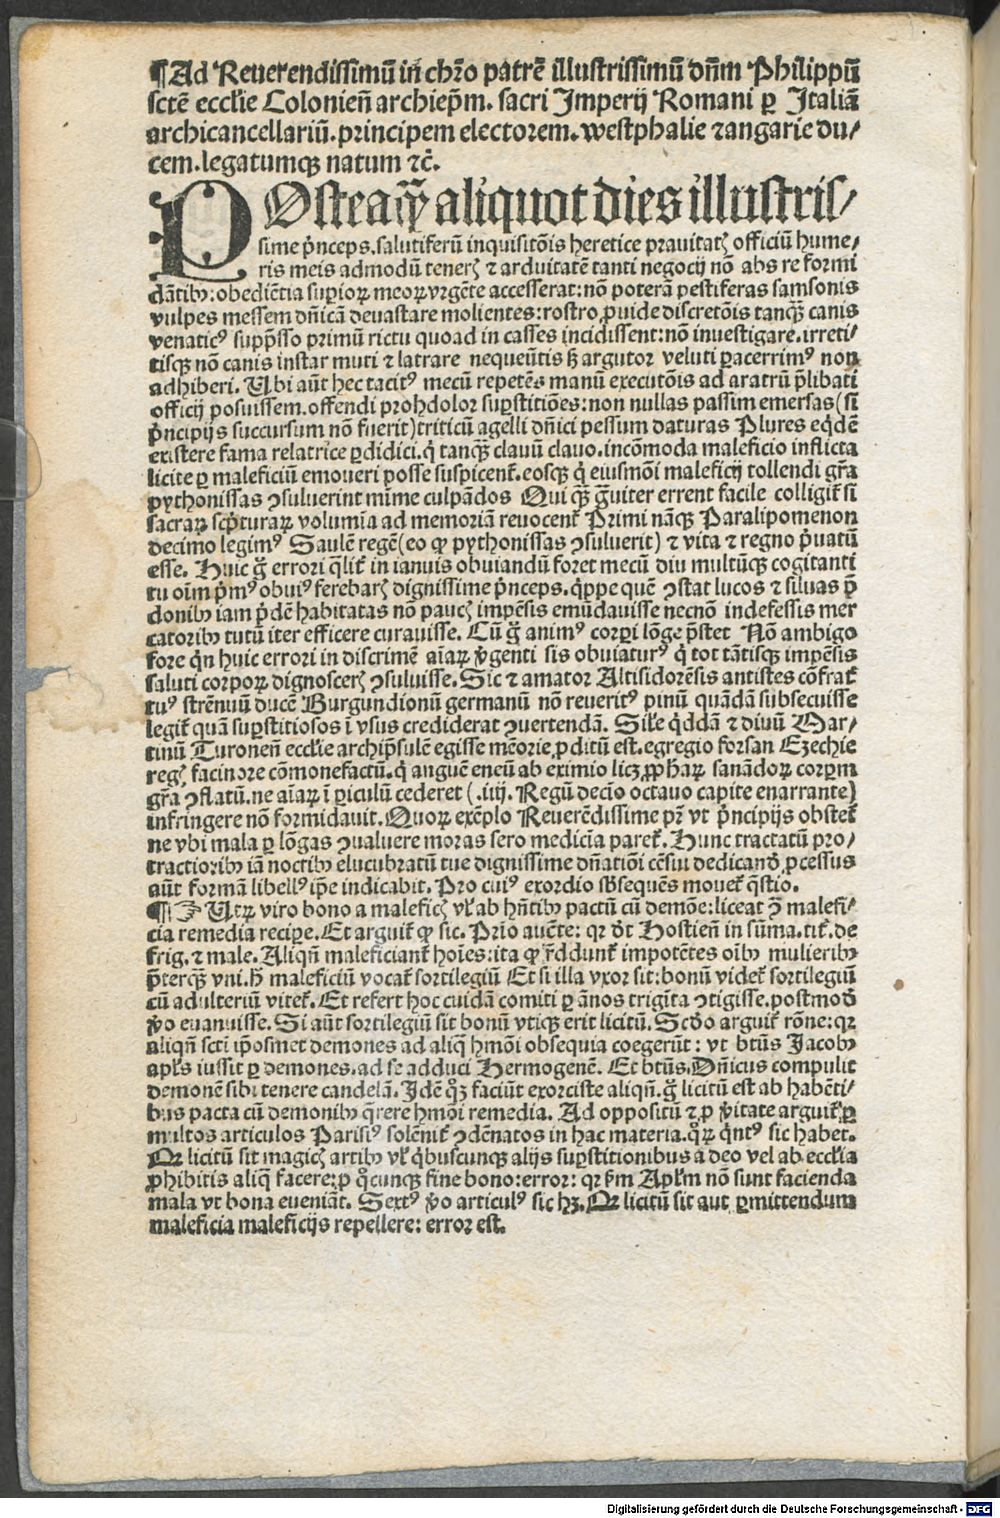 ¶Ad Reuerendissimū in chr̄o patrē illustrissimū dn̄m Philippū
sctē eccl'ie Colonien̄ archiep̄m. sacri Imperij Romani ꝑ Italiā
archicancellariū. principem electorem. westphalie ⁊angarie du⸗
cem. legatumqꝫ natum ⁊c̄.
POsteaqͣꝫ aliquot dies illustris⸗
sime p̄nceps. salutiferū inquisitōis heretice prauitatꝭ officiū hume⸗
ris meis admodū tenerꝭ ⁊ arduitatē tanti negocij nō abs re formi
dātibꝰ: obediētia supioꝝ meoꝝ vrgēte accesserat: nō poterā pestiferas samsonis
vulpes messem dn̄icā deuastare molientes: rostro ꝓuide discretōis tanqͣꝫ canis
venaticꝰ supp̄sso primū rictu quoad in casses incidissent: nō inuestigare. irreti⸗
tisqꝫ nō canis instar muti ⁊ latrare nequeūtis sꝫ argutor veluti ꝑacerrimꝰ non
adhiberi. Ubi aūt hec tacitꝰ mecū repetēs manū executōis ad aratrū p̄libati
officij posuissem. offendi prohdolor suꝑstitiōes: non nullas passim emersas (si
p̄ncipijs succursum nō fuerit) triticū agelli dn̄ici pessum daturas Plures eq̇dē
existere fama relatrice ꝑdidici. q̇ tanqͣꝫ clauū clauo. incōmoda maleficio inflicta
licite ꝑ maleficiū emoueri posse suspicent᷑. eosqꝫ q̇ eiusmōi maleficij tollendi gr̄a
pythonissas ꝯsuluerint mīme culpādos Qui qͣꝫ gͣuiter errent facile colligit᷑ si
sacraꝝ scp̄turaꝝ volumīa ad memoriā reuocent᷑ Primi nāqꝫ Paralipomenon
decimo legimꝰ Saulē regē (eo ꝙ pythonissas ꝯsuluerit) ⁊ vita ⁊ regno p̄uatū
esse. Huic gͦ errori qͣlit᷑ in ianuis obuiandū foret mecū diu multūqꝫ cogitanti
tu oīm p̄mꝰ obuiꝰ ferebarꝭ dignissime p̄nceps. q̇ppe quē ꝯstat lucos ⁊ siluas p̄
donibꝰ iam p̄dē habitatas nō paucꝭ impēsis emūdauisse necnō indefessis mer
catoribꝰ tutū iter efficere curauisse. Cū gͦ animꝰ corꝑi lōge p̄stet Nō ambigo
fore q̇n huic errori in discrimē aīaꝝ v̓genti sis obuiaturꝰ q̇ tot tātisqꝫ impēsis
saluti corpoꝝ dignoscerꝭ ꝯsuluisse. Sic ⁊ amator Altisidorēsis antistes cōfrat᷑
tuꝰ strēnuū ducē Burgundionū germanū nō reueritꝰ pinū quādā subsecuisse
legit᷑ quā suꝑstitiosos ī vsus crediderat ꝯuertendā. Sil'e q̇ddā ⁊ diuū Mar⸗
tinū Turonen̄ eccl'ie archip̄sulē egisse mēorie ꝓditū est. egregio forsan Ezechie
regꝭ facinore cōmonefactū. q̇ anguē eneū ab eximio licꝫ ꝓphaꝝ sanādoꝝ corꝑm
gr̄a ꝯflatū. ne aīaꝝ ī ꝑiculū cederet (.iiij. Regū decīo octauo capite enarrante)
infringere nō formidauit. Quoꝝ exēplo Reuerēdissime pr̄ vt p̄ncipijs obstet᷑
ne vbi mala ꝑ lōgas ꝯualuere moras sero medicīa paret᷑. Hunc tractatū pro⸗
tractioribꝰ iā noctibꝰ elucubratū tue dignissime dn̄atiōi cēsui dedicandꝭ ꝓcessus
aūt formā libellꝰ ip̄e indicabit. Pro cuiꝰ exordio sb̄sequēs mouet᷑ q̄stio.
¶☞ Utꝝ viro bono a maleficꝭ vl' ab hn̄tibꝰ pactū cū demōe: liceat ꝯ̄ malefi⸗
cia remedia recipe. Et arguit᷑ ꝙ sic. Prīo aucte: qꝛ dt̄ Hostien̄ in sūma. tit᷑. de
frig. ⁊ male. Aliqn̄ maleficiant᷑ hoīes: ita ꝙ r̄ddunt᷑ impotētes oībꝰ mulieribꝰ
p̄terqͣꝫ vni. h̄ maleficiū vocat᷑ sortilegiū Et si illa vxor sit: bonū videt᷑ sortilegiū
cū adulteriū vitet᷑. Et refert hoc cuidā comiti ꝑ ānos trigīta ꝯtigisse. postmodꝭ
v̓o euanuisse. Si aūt sortilegiū sit bonū vtiqꝫ erit licitū. Scd̓o arguit᷑ rōne: qꝛ
aliqn̄ scti ip̄osmet demones ad aliq̄ hmōi obsequia coegerūt: vt btūs Jacobꝰ
apl's iussit ꝑ demones. ad se adduci Hermogenē. Et btūs. Dn̄icus compulit
demonē sibi tenere candelā. Idē qͦꝫ faciūt exorciste aliqn̄. gͦ licitū est ab habēti⸗
bus pacta cū demonibꝰ q̄rere hmōi remedia. Ad oppositū ⁊ ꝓ v̓itate arguit᷑ ꝑ
multos articulos Parisiꝰ solēnit᷑ ꝯdēnatos in hac materia. qͦꝝ q̇ntꝰ sic habet.
Qꝛ licitū sit magicꝭ artibꝰ vl' q̇buscunqꝫ alijs suꝑstitionibus a deo vel ab eccl'ia
ꝓhibitis aliq̄ facere: ꝓ qͦcunqꝫ fine bono: error: qꝛ sm̄ Apl'm nō sunt facienda
mala vt bona eueniāt. Sextꝰ v̓o articulꝰ sic hꝫ. Qꝛ licitū sit aut ꝑmittendum
maleficia maleficijs repellere: error est.
Digitalisierung gefördert durch die Deutsche Forschungsgemeinschaft - DFG